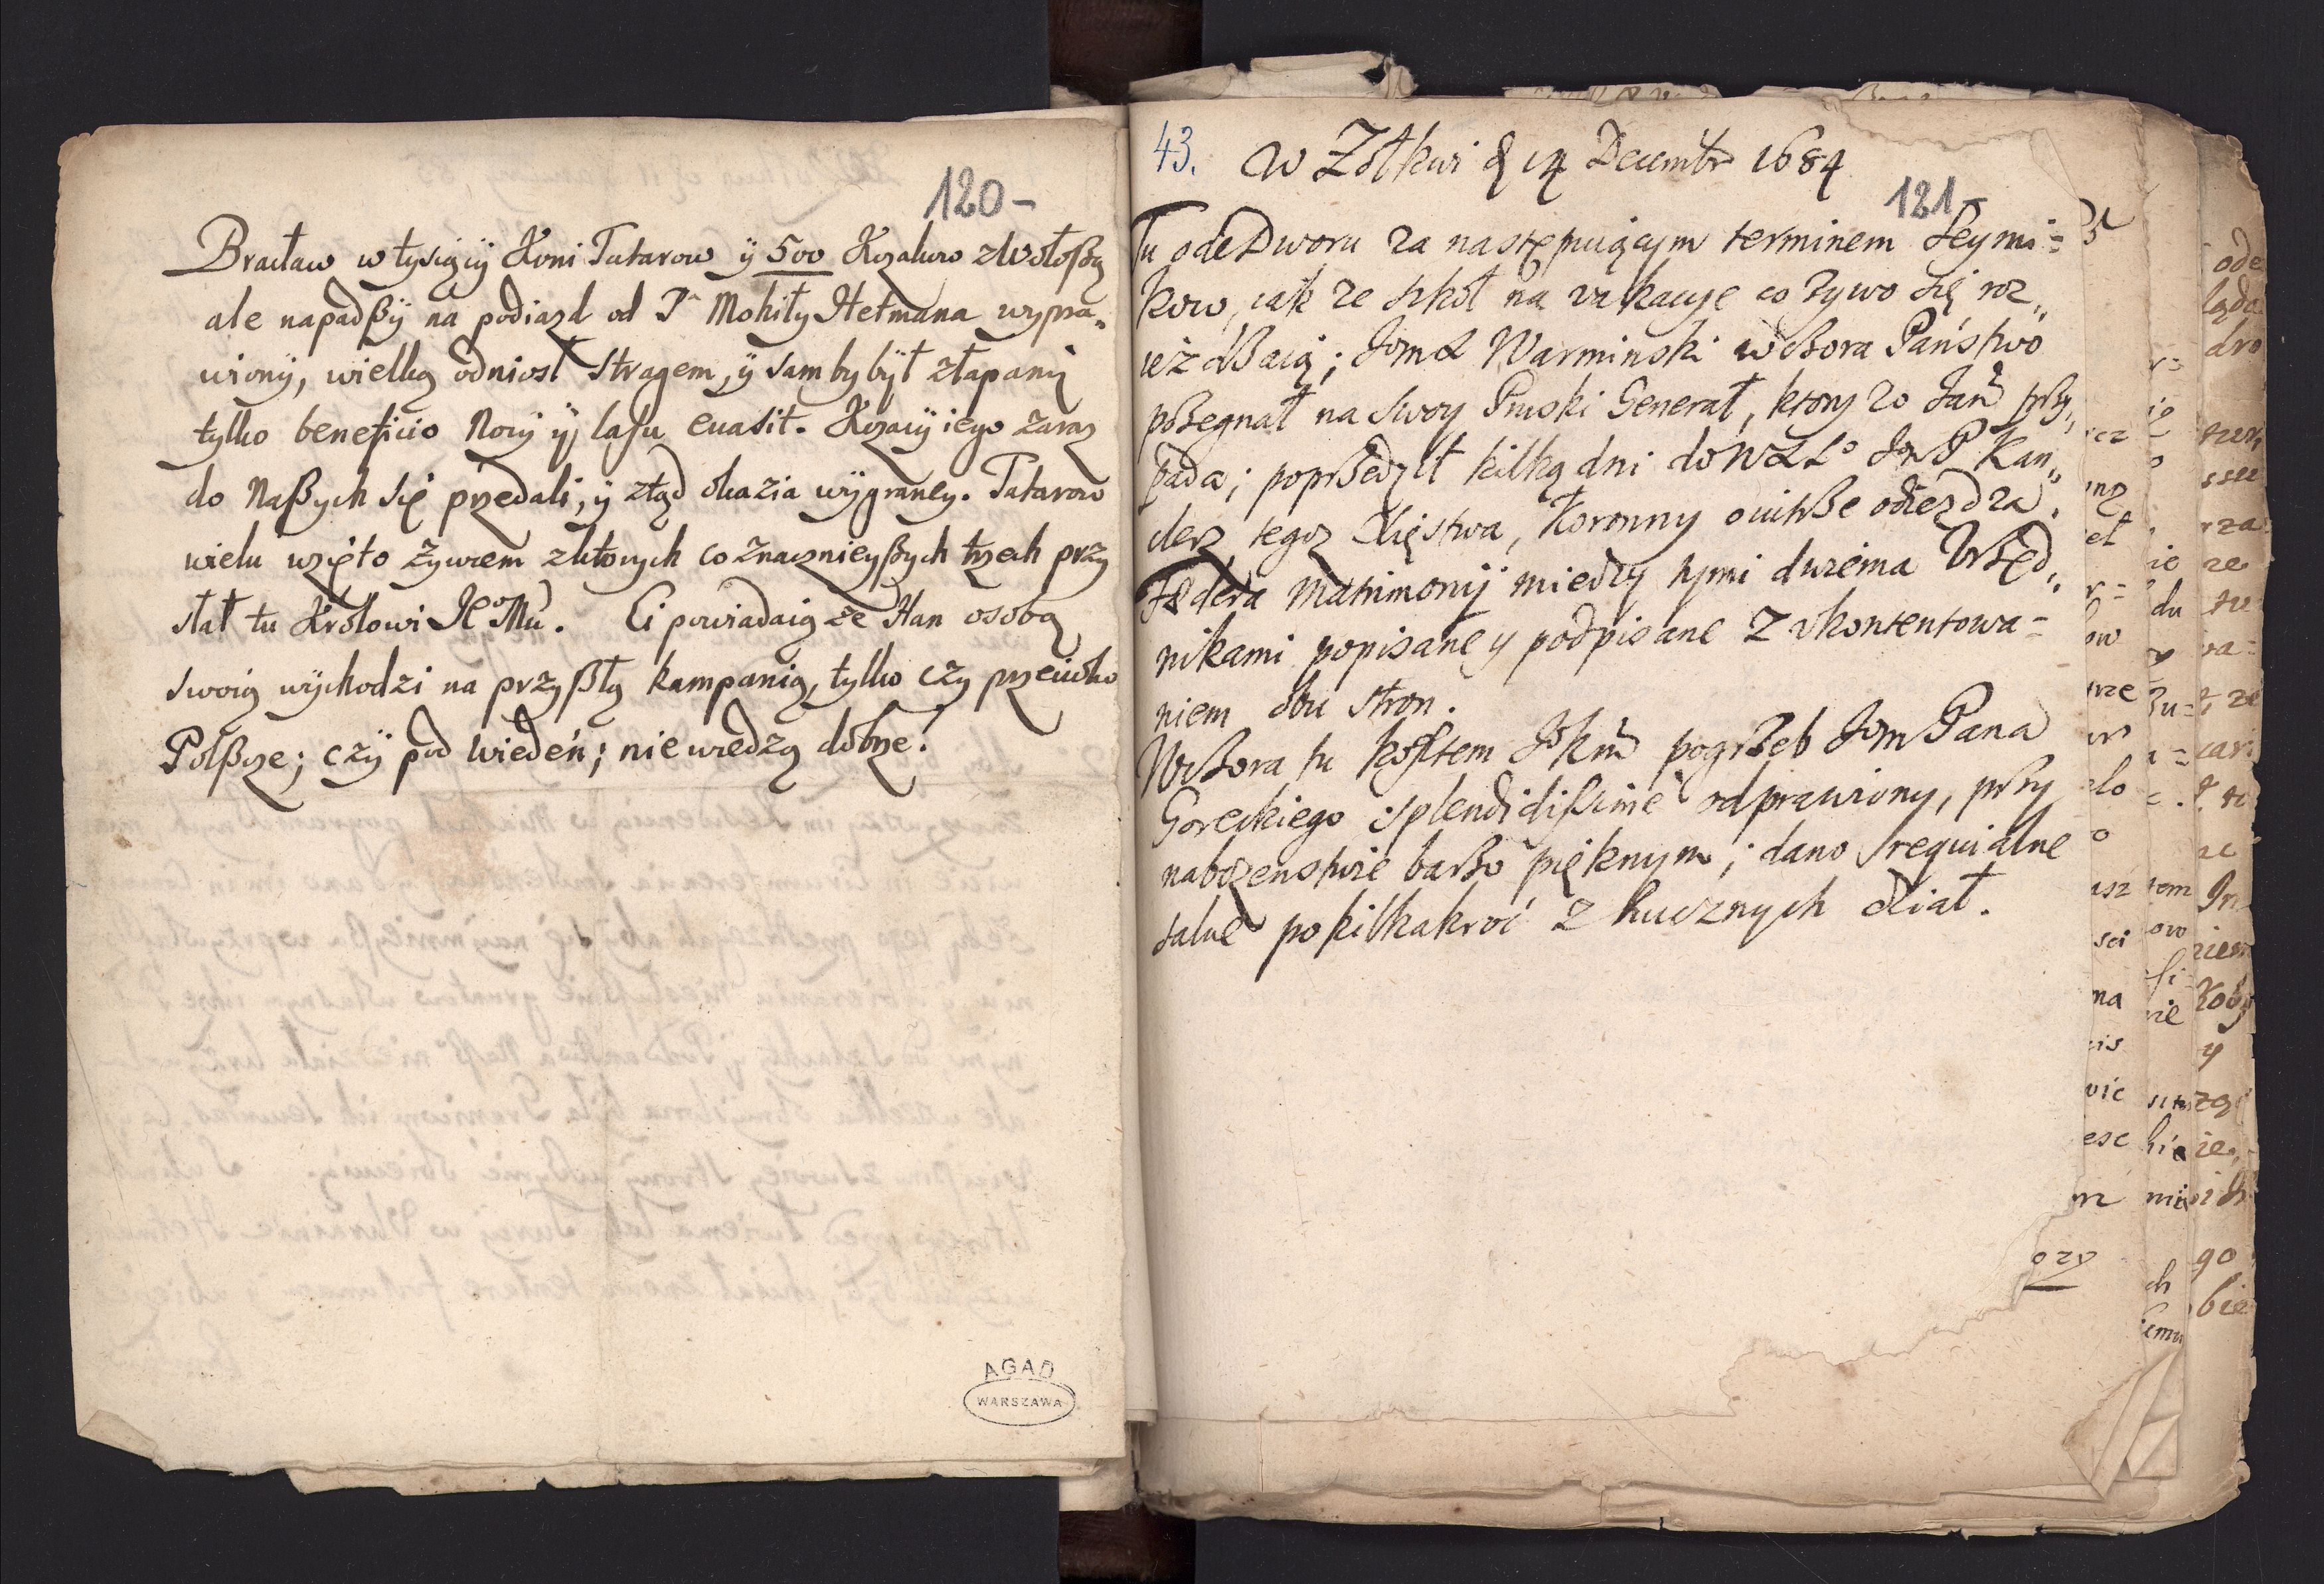 120-
Bracław w tysiącÿ Koni Tatarow ÿ 500 Kozakow z Wołoßą
ale napadßÿ na podiazd od P. Mohiły Hetmana wypra„
wionÿ, wielką odniosł stragem, ÿ sam by bÿł złapanÿ
tylko beneficio Nocÿ ÿ lasu euasit. Kozacÿ iego zaraz
do Naßych się przedali, ÿ ztąd okazia wÿgraney. Tatarow
wielu wzięto zywcem z ktorych co znacznieyßych trzech przy
słał tu Krolowi JeoMci. Ci powiadaią ze Han osobą
swoią wÿchodzi na przyßłą kampanią, tylko czy przeciwko
Polßcze; czÿ pod Wiedeń; nie wiedzą dobrze.
AGAD
WARSZAWA
43. w Zołkwi d 14 Decembr 1684
121-
Tu ode Dworu za następuiącym terminem Seymi=
kow, iak ze szkoł na wakacye co zywo się roz„
ieżdßaią; Jom X Warminski wczora Państwo
pożegnał na swoy Pruski General, ktory 20 Jan przy„
pada; poprzedził kilką dni do WXLo JmP Kan„
clerz tegoz Xięstwa, Koronny o iutrze odiezdza.
Fædera Matrimonÿ między tymi dwiema Urzęd„
nikami popisane y podpisane z ukontentowa=
niem obu stron.
Wczora tu kosztem JKM pogrzeb Jom Pana
Goreckiego splendidissime odprawiony, przy
nabozenstwie barzo pięknym; dano requialne
salue po kilkakroć z hucznych dział.